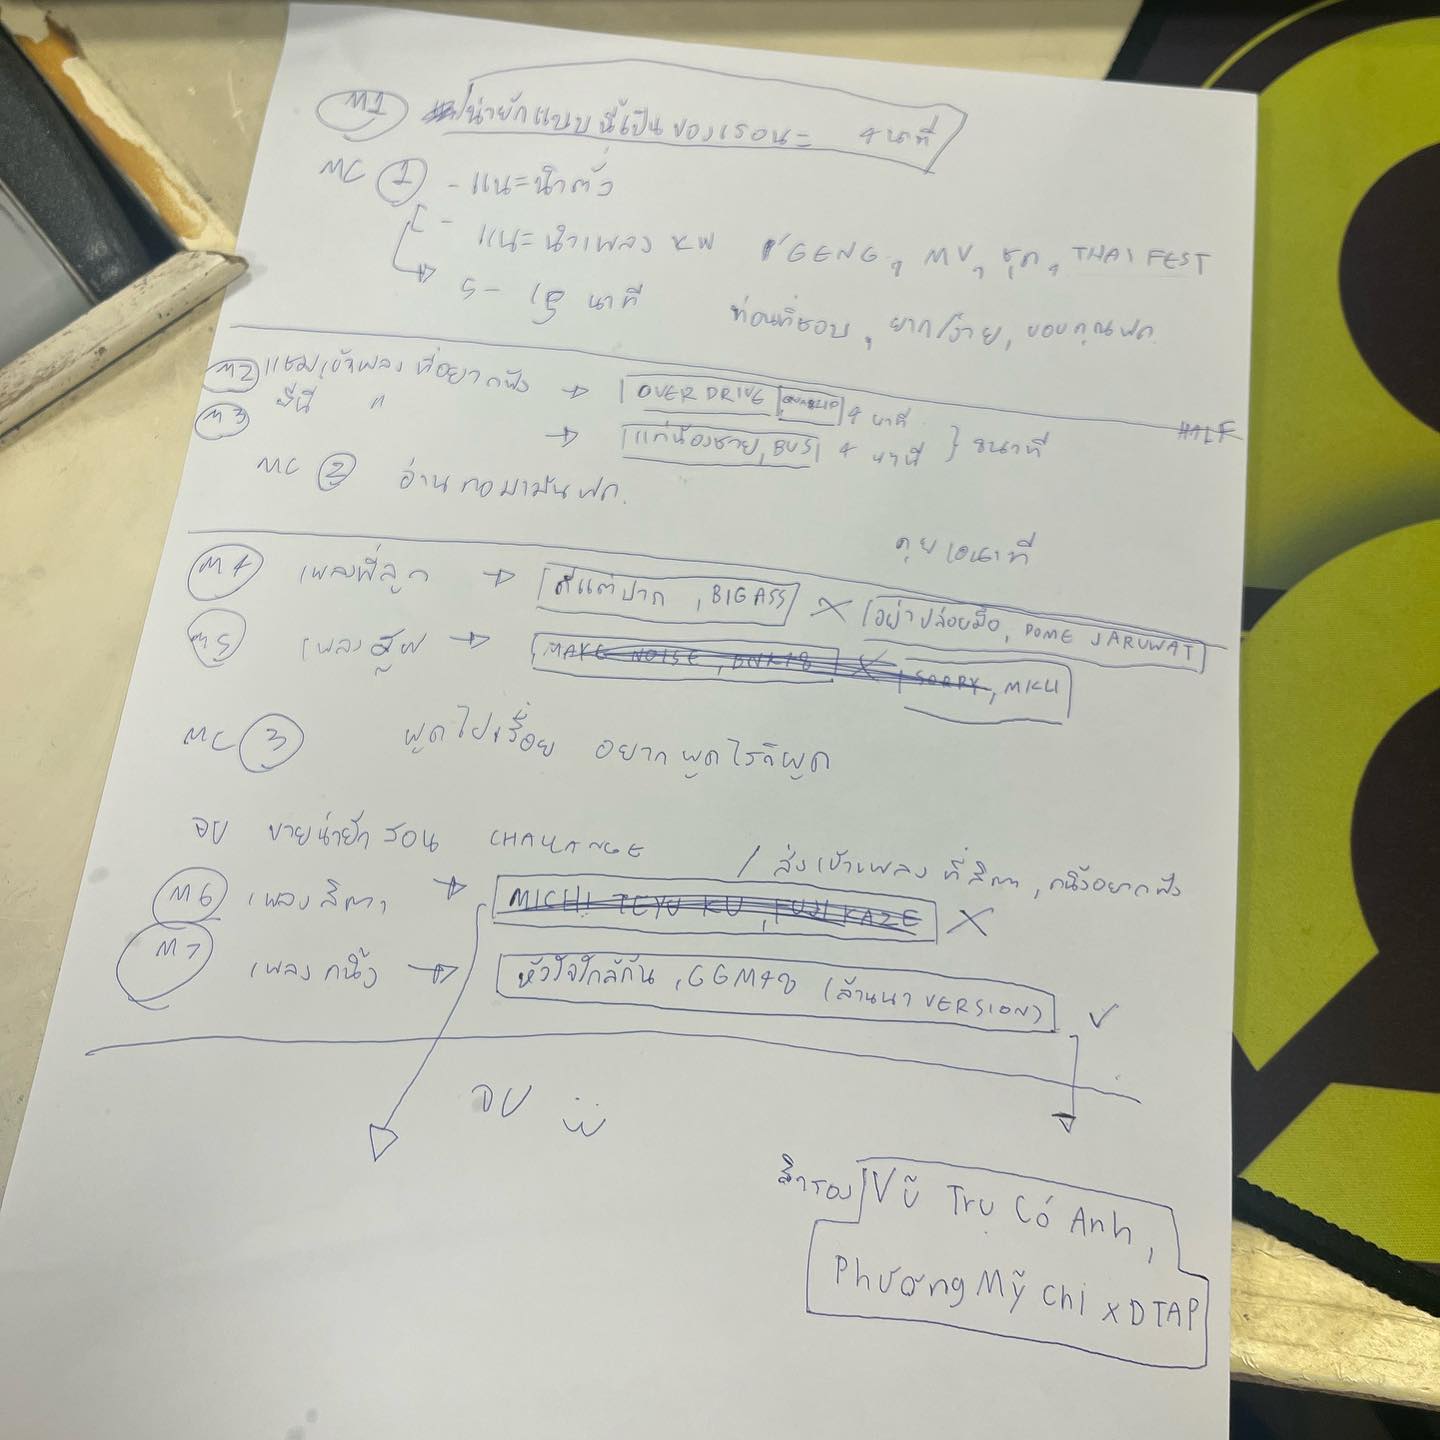 M1 น่ายักแบบนี้เป็นของเธอนะ 4 นาที
MC 1 - แนะนำตัว
- แนะนำเพลง XW GENG, MV, ชุด, THAI FEST
5 - นาที ท่อนที่ชอบ, ยาก/ง่าย, ขอบคุณฟค.
M2 แชมเข้าเพลงที่อยากฟัง → OVERDRIVE 4 นาที
M3 ซีนี " → แค่น้องชาย, BUS 4 นาที } 8นาที HALF
MC 2 อ่านคอมเม้นฟค.
คุย นาที
M4 เพลงพี่ลูก → ดีแต่ปาก, BIGASS X อย่าปล่อยมือ, DOME JARUWAT
M5 เพลง → MAKE NOISE, BNK48 X SORRY, MKU
MC 3 พูดไปเรื่อย อยากพูดไรก็พูด
จบ ขายน่ายัก สอน CHALLANGE
/ ส่งเข้าเพลงที่สิตา, กนิ้งอยากฟัง
M6 เพลงสิตา → MICHI TEYU KU, FUJI KAZE X
M7 เพลงกนิ้ง → หัวใจใกล้กัน, CGM48 (ล้านนา VERSION) ✓
จบ
สำรอง Vũ Trụ Có Anh,
Phương Mỹ Chi x DTAP